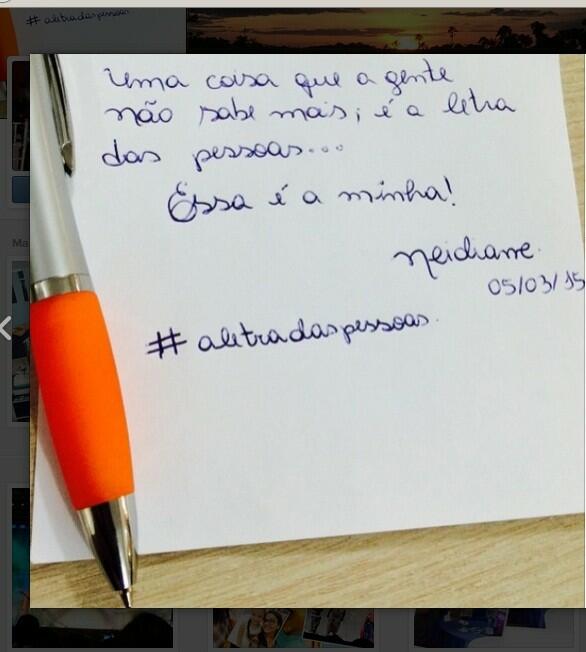 #aletradaspessoas
Uma coisa que a gente
não sabe mais, é a letra
das pessoas...
Essa é a minha!
Neidianne.
05/03/15
#aletradaspessoas.
Ma